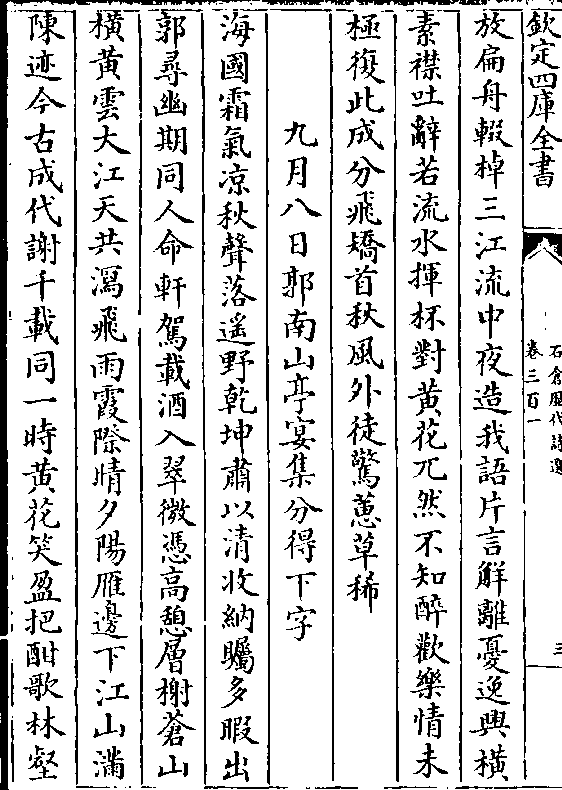 欽定四庫全書
石倉歷代詩選
卷三百一
三
放扁舟輟棹三江流中夜造我語片言解離憂逸興橫
素襟吐辭若流水揮杯對黃花兀然不知醉歡樂情未
極復此成分飛矯首秋風外徒驚蕙草稀
九月八日郭南山亭宴集分得下字
海國霜氣凉秋聲落遥野乾坤肅以清收納矚多暇出
郭尋幽期同人命軒駕載酒入翠微憑高憩層榭蒼山
橫黃雲大江天共瀉飛雨霞際晴夕陽雁邊下江山滿
陳迹今古成代謝千載同一時黃花笑盈把酣歌林壑